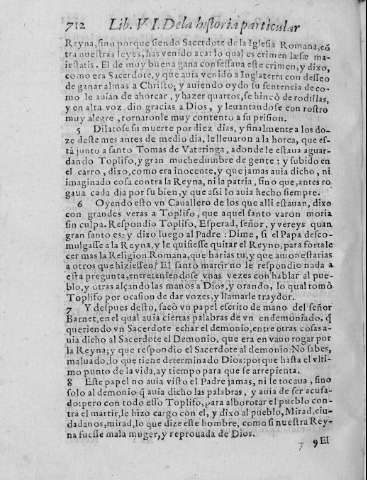 712 Lib. VI. De la historia particular
Reyna, sino porque siendo Sacerdote de la Iglesia Romana, cõ
tra nuestras leyes, has venido acà: lo qual es crimen læsæ ma-
iestatis. El de muy buena gana confessaua este crimen, y dixo,
como era Sacerdote, y que auia venido a Inglaterra con desseo
de ganar almas a Christo; y auiendo oydo su sentencia de co-
mo le auian de ahorcar, y hazer quartos, se hincò de rodillas,
y en alta voz dio gracias a Dios, y leuantandose con rostro
muy alegre, tornaronle muy contento a su prision.
5 Dilatose su muerte por diez dias, y finalmente a los do-
ze deste mes antes de medio dia, le lleuaron a la horca, que es-
tà junto a santo Tomas de Vateringa, adonde le estaua aguar-
dando Toplifo, y gran muchedumbre de gente: y subido en
el carro, dixo, como era inocente, y que jamas auia dicho, ni
imaginado cosa contra la Reyna, ni la patria, sino que, antes ro-
gaua cada dia por su bien, y que assi lo auia hecho siempre.
6 Oyendo esto vn Cauallero de los que alli estauan, dixo
con grandes veras a Toplifo, que aquel santo varon moria
sin culpa. Respondio Toplifo, Esperad, señor, y vereys quan
gran santo es: y dixo luego al Padre: Dime, si el Papa descо-
mulgasse a la Reyna, y le quisiesse quitar el Reyno, para fortale
cer mas la Religion Romana, que harias tu, y que amonestarias
a otros que hiziessen? El santo martir no le respondio nada a
esta pregunta, entreteniendose vnas vezes con hablar al pue-
blo, y otras alçando las manos a Dios, y orando, lo qual tomò
Toplifo por ocasion de dar vozes, y llamarle traydor.
7 Y despues desto, sacò vn papel escrito de mano del señor
Barnet, en el qual auia ciertas palabras de vn endemoniado, q̃
queriendo vn Sacerdote echar el demonio, entre otras cosas a-
uia dicho al Sacerdote el Demonio, que era en vano rogar por
la Reyna; y que respondio el Sacerdote al demonio: No sabes,
maluado, lo que tiene determinado Dios; porque hasta el vlti-
mo punto de la vida, ay tiempo para que se arrepienta.
8 Este papel no auia visto el Padre jamas, ni le tocaua, sino
solo al demonio q̃ auia dicho las palabras, y auia de ser acusa-
do: pero con todo esso Toplifo, para alborotar el pueblo con-
tra el martir, le hizo cargo con el, y dixo al pueblo, Mirad, ciu-
dadanos, mirad, lo que dize este hombre, como si nuestra Rey-
na fuesse mala muger, y reprouada de Dios.
9 El